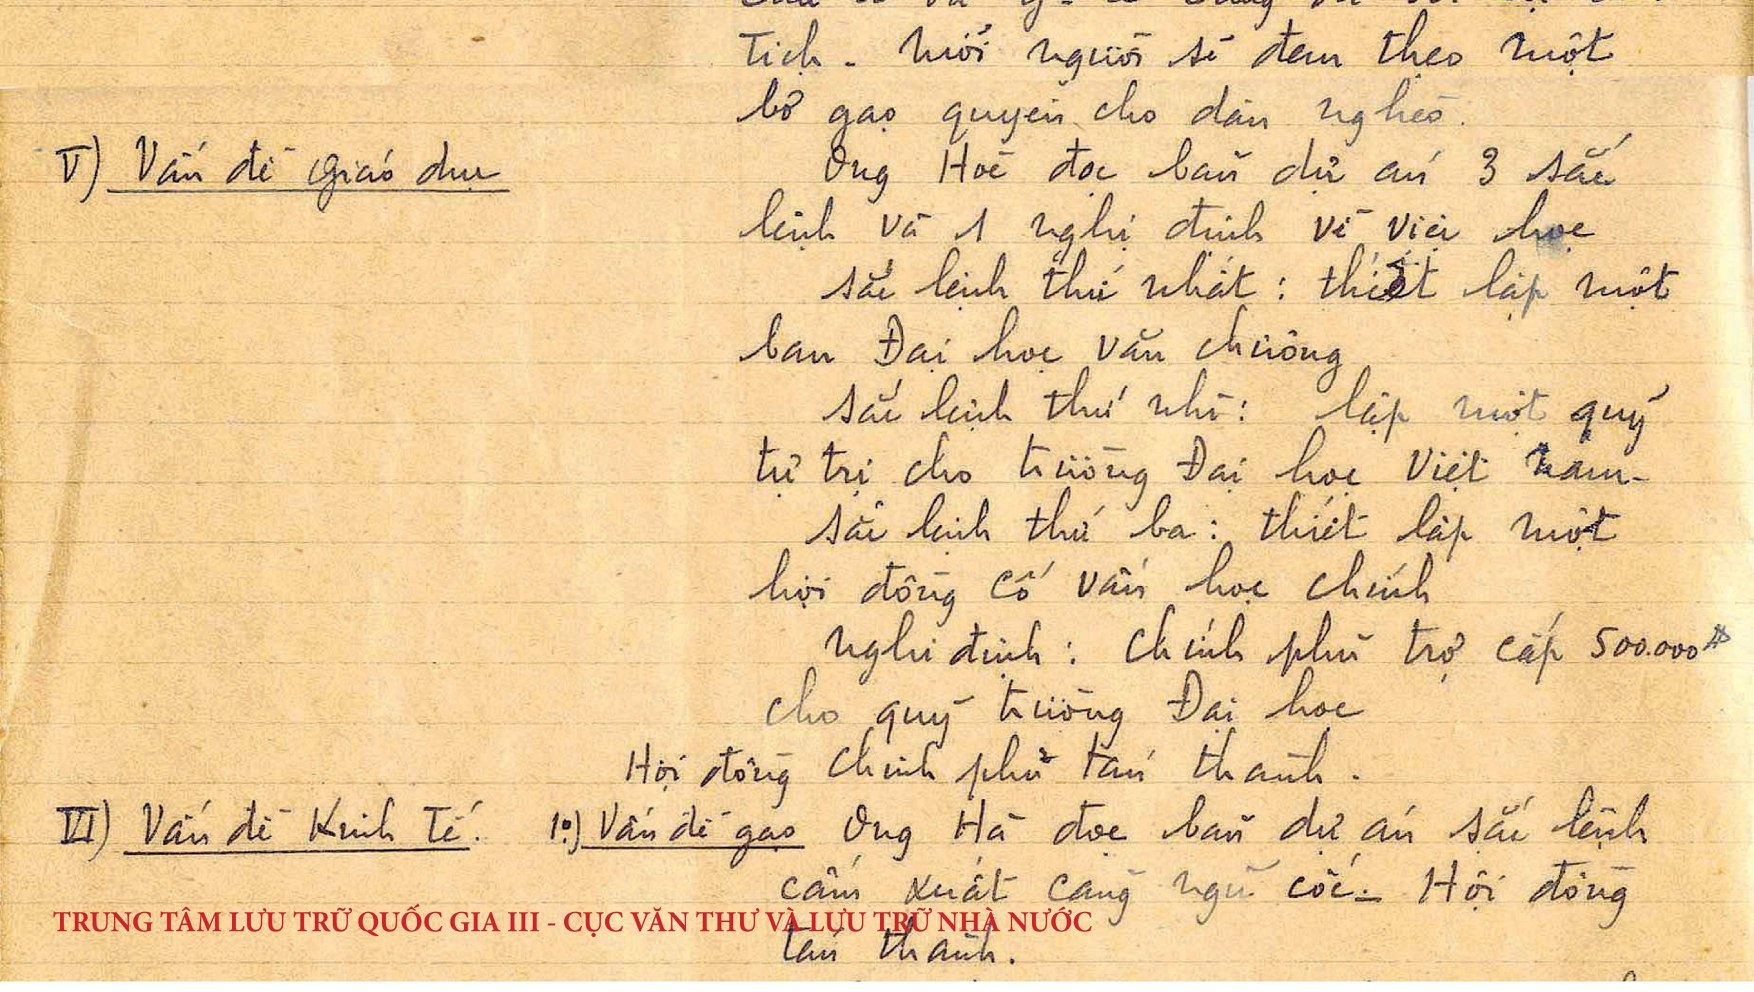 Tịch - Mỗi người sẽ đem theo một
bơ gạo quyên cho dân nghèo.
V) Vấn đề giáo dục
Ông Hoè đọc bản dự án 3 sắc
lệnh và 1 nghị định về việc học
Sắc lệnh thứ nhất : thiết lập một
ban Đại học văn chương
Sắc lệnh thứ nhì : lập một quỹ
tự trị cho trường Đại học Việt Nam -
Sắc lệnh thứ ba : thiết lập một
hội đồng cố vấn học chính
Nghị định : Chính phủ trợ cấp 500.000$
cho quỹ trường Đại học
Hội đồng Chính phủ tán thành.
VI) Vấn đề Kinh Tế. 1º) Vấn đề gạo Ông Hà đọc bản dự án sắc lệnh
cấm xuất cảng ngũ cốc - Hội đồng
TRUNG TÂM LƯU TRỮ QUỐC GIA III - CỤC VĂN THƯ VÀ LƯU TRỮ NHÀ NƯỚC
tán thành.